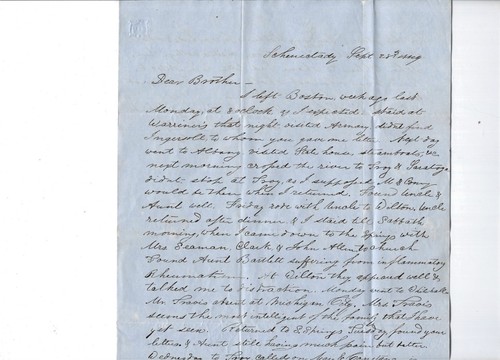 Schenectady Sept 23rd
Dear Brother —
I left Boston week ago last
Monday at o'clock as I expected. staid at
Warriners that night visited Armory didn't find
Ingersoll to whom you gave me letter Next day
went to Albany visited State house, steamboats, &c
next morning crossed the river to Troy & Saratoga
didn't stop at Troy as I supposed M &
would be there when I returned. Found Uncle &
Aunt well. Friday rode with Uncle to Wilton, Uncle
returned after dinner & I staid till Sabbath
morning when I came down to the Springs with
Mrs Seaman Clark & John Allen to church
Found Aunt Bartlett suffering from inflammatory
Rheumatism — At Wilton they appeared well &
talked me to distraction. Monday went to
Mr Travis at Michigan City. Mrs Travis
seems the most intelligent of the family that I have
yet seen. Returned to Springs Tuesday, found your
letters & Aunt still having much pain but better
Wednesday to Troy called on